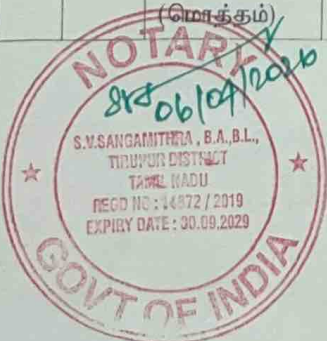 (மொத்தம்)
NOTARY
06/04/2026
S.V.SANGAMITHRA, B.A.,B.L.,
TIRUPUR DISTRICT
TAMIL NADU
REGD NO : 14872 / 2019
EXPIRY DATE : 30.09.2029
GOVT OF INDIA